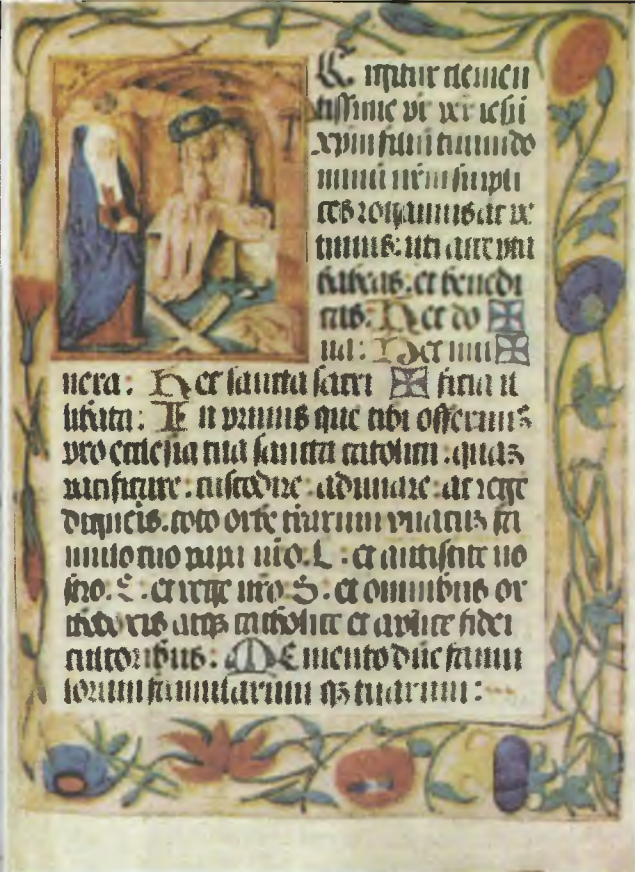 E. igitur clemen
tissime pr per iesu
xpm filiu tuum do
minu nrm suppli
ces rogamus ac pe
timus: uti accepta
habeas. et benedi
cas: Hec do ✠
na: Hec mu ✠
nera: Hec sancta sacri ✠ ficia il
libata: In primis que tibi offerimus
pro ecclesia tua sancta catolica: quaz
pacificare. custodire. adunare: ac rege
digneris. toto orbe terrarum unacus fa
mulo tuo papa nro. L: et antistite no
stro. et rege nro. S. et omnibus or
thodoxis atqz catholice et aplice fidei
cultoribus: Memento dne famu
lorum famularum qz tuarum: